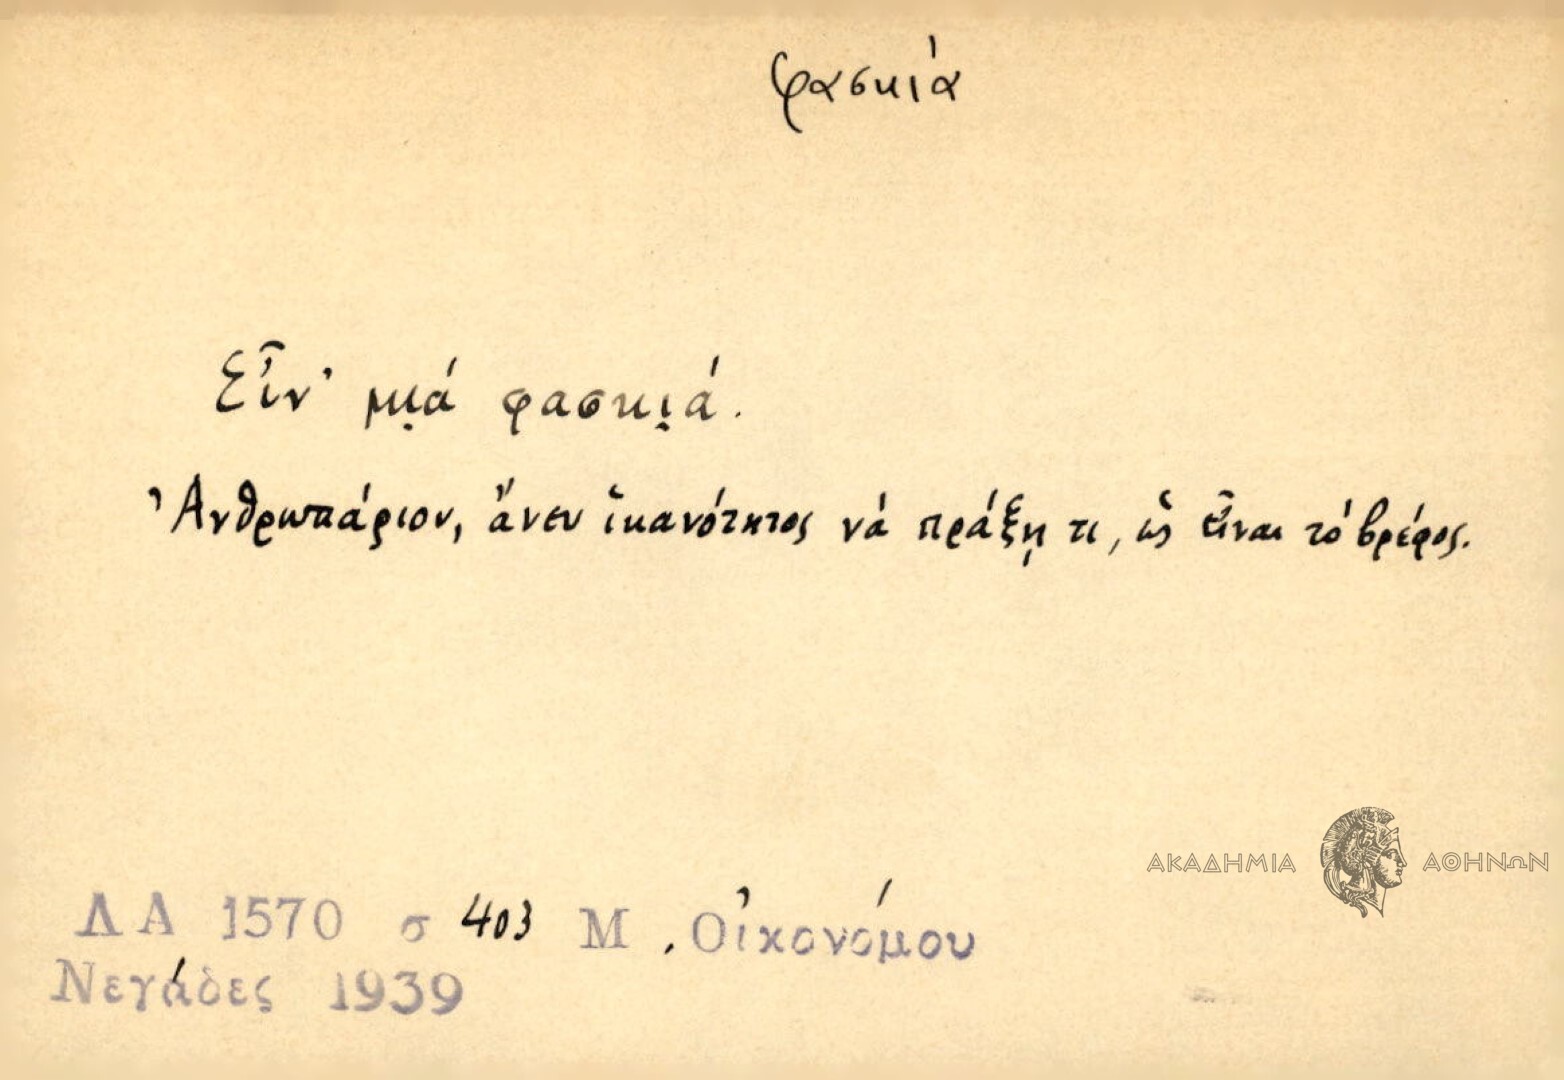 φασκιά
Εἶν' μιά φασκιά.
Ἀνθρωπάριον, ἄνευ ἱκανότητος νά πράξῃ τι, ὡς εἶναι τό βρέφος.
ΑΚΑΔΗΜΙΑ ΑΘΗΝΩΝ
ΛΑ 1570 σ 403 Μ. Οἰκονόμου
Νεγάδες 1939